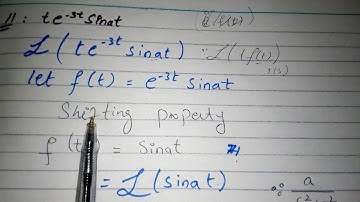 11: te^-3t sinat
L(te^-3t sinat) ∵ L(tf(t))
let f(t) = e^-3t sinat
Shifting property
f(t) = sinat
= L(sinat) ∵ a